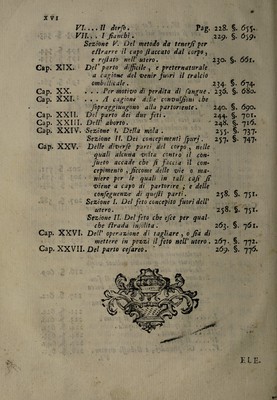 XVI
VI. . . . Il dirso. Pag. 228. §. 655.
VII. . . I fianchi. 229. §. 659.
Sezione V. Del metodo da tenersi per
estrarre il capo staccato dal corpo,
e restato nell'utero. 230. §. 661.
Cap. XIX. Del' parto difficile, e preternaturale
a cagione del venir fuori il tralcio
ombilicale. 234. §. 674.
Cap. XX. . . . Per motivo di perdita di sangue. 236. §. 680.
Cap. XXI. . . . A cagione delle convulsioni che
sopraggiungono alla partoriente. 240. §. 690.
Cap. XXII. Del parto dei due feti. 244. §. 701.
Cap. XXIII. Dell' aborto. 248. §. 716.
Cap. XXIV. Sezione I. Della mola. 255. §. 737.
Sezione II. Dei concepimenti spurj. 257. §. 747.
Cap. XXV. Delle diverse parti del corpo, nelle
quali alcuna volta contro il con-
sueto accade che si faccia il con-
cepimento, siccome delle vie o ma-
niere per le quali in tali casi si
viene a capo di partorire; e delle
conseguenze di questi parti. 258. §. 751.
Sezione I. Del feto concepito fuori dell'
utero. 258. §. 751.
Sezione II. Del feto che esce per qual-
che strada insolita. 263. §. 761.
Cap. XXVI. Dell' operazione di tagliare, o sia di
mettere in pezzi il feto nell' utero. 267. §. 772.
Cap. XXVII. Del parto cesareo. 269. §. 776.
ELE.